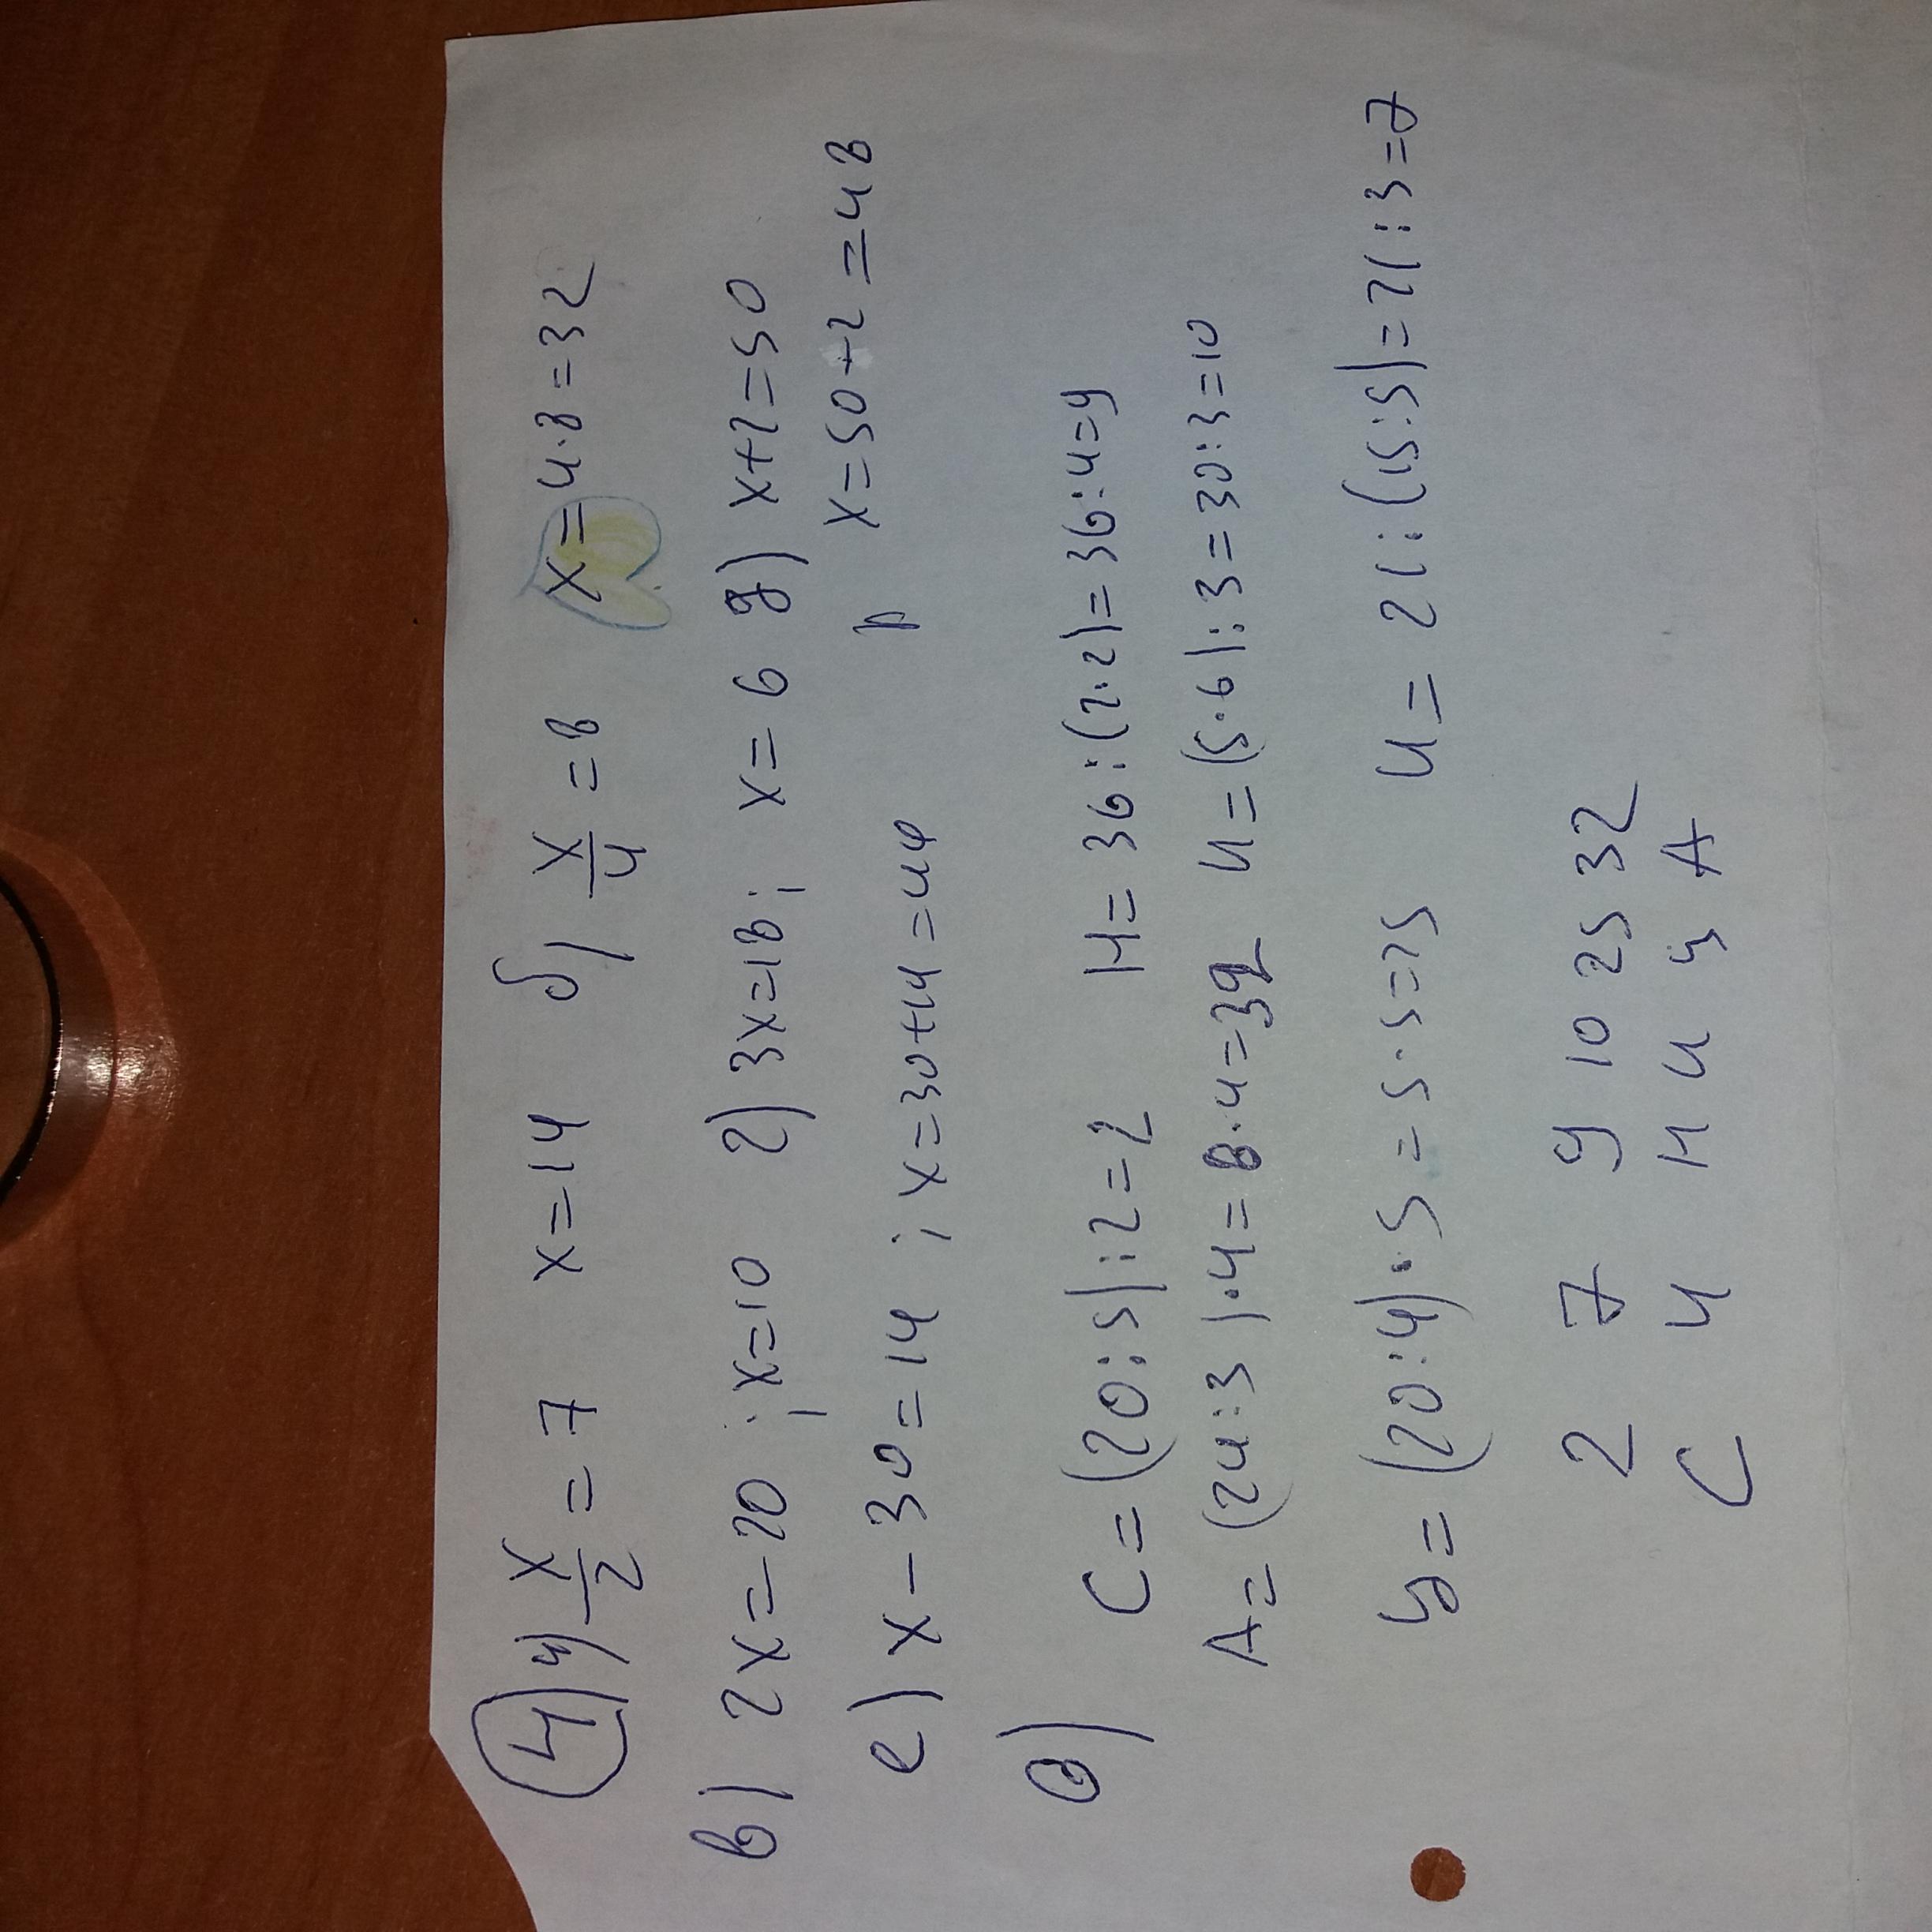 4) а) x/2 = 7 x = 14 б) x/4 = 8 x = 4·8 = 32
в) 2x = 20 ; x = 10 г) 3x = 18 ; x = 6 д) x + 2 = 50
x = 50 - 2 = 48
е) x - 30 = 14 ; x = 30 + 14 = 44
6) С = (20 : 5) : 2 = 2 Н = 36 : (2·2) = 36 : 4 = 9
А = (24 : 3) · 4 = 8 · 4 = 32 И = (5·6) : 3 = 30 : 3 = 10
У = (20 : 4) · 5 = 5 · 5 = 25 И = 21 : (15:5) = 21 : 3 = 7
2 7 9 10 25 32
С И Н И У А